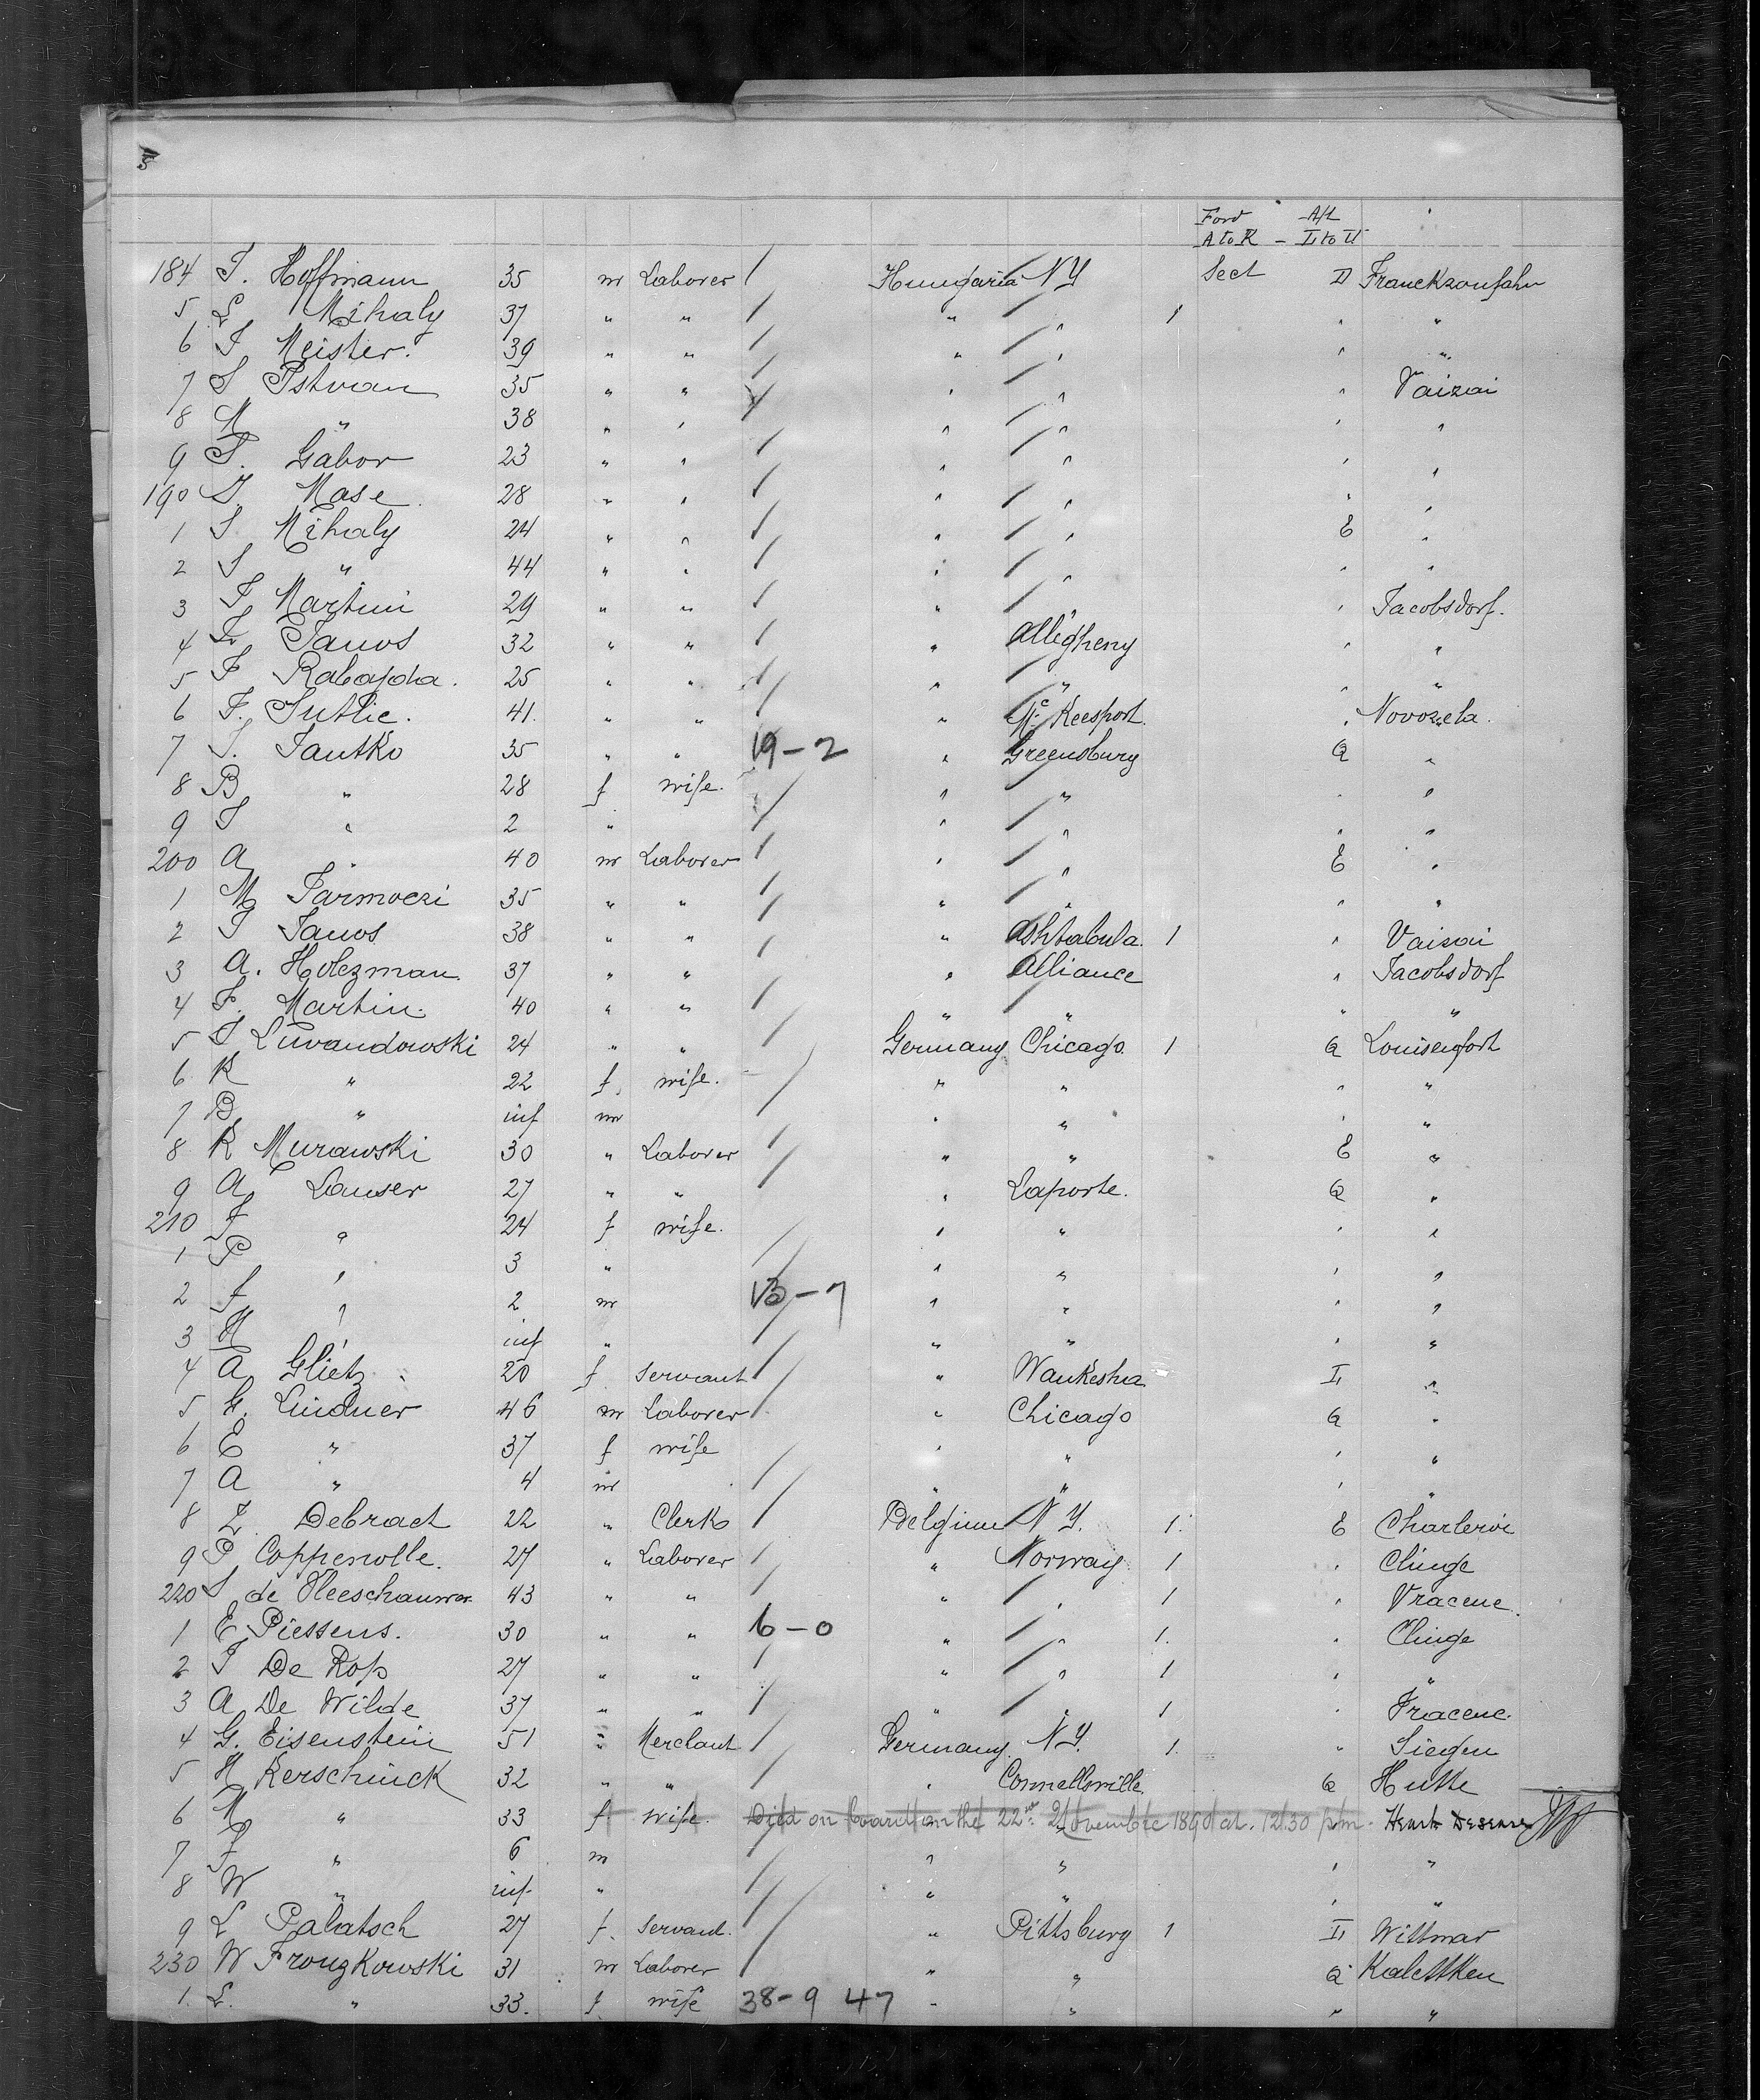 5
Ford Aft
A to K - L to U
184 J. Hoffmann 35 m Laborer / Hungaria N Y Sect D Franckzonfahn
5 L Mihaly 37 " " / " / " 1 " "
6 J Meister. 39 " " / " / " " "
7 J Istvan 35 " " / " / " " Vaizai
8 M " 38 " " / " / " " "
9 J. Gabor 23 " " / " / " " "
190 J. Mase 28 " " / " / " " "
1 J Mihaly 24 " " / " / " E "
2 J " 44 " " / " / " " "
3 J Martini 29 " " / " / " " Jacobsdorf.
4 L Janos 32 " " / " Allegheny " "
5 J Rabajdha. 25 " " / " / " " "
6 J. Sutlic. 41. " " / " Mc Keesport. " Novozela.
7 J. Jautko 35 " " 19-2 " Greensburg Q "
8 B " 28 f wife. / " / " " "
9 J " 2 " / " / " " "
200 A " 40 m Laborer / " / " E "
1 M Jarmoczi 35 " " / " / " " "
2 J Janos 38 " " / " Ashtabula. 1 " Vaizai
3 A. Holczman. 37 " " / " Alliance " Jacobsdorf
4 F. Martin. 40 " " / " / " " "
5 J Luvandowski 24 " " / Germany Chicago. 1 Q Louisenfort
6 K " 22 f. wife. / " " " "
7 B " inf m / " " " "
8 K Murawski 30 " Laborer / " " E "
9 A Lauser 27 " " / " Laporte. Q "
210 J " 24 f wife. / " " " "
1 P " 3 " / " " " "
2 J " 2 m 13-7 " " " "
3 M " inf " / " " " "
4 A Glietz 20 f servant / " Waukesha L "
5 G. Lindner 46 m Laborer / " Chicago Q "
6 E " 37 f wife / " " " "
7 A " 4 m / " " " "
8 Z. Debract 22 " Clerk / Belgium N Y. 1. E Charleroi
9 P Coppenolle. 27 " Laborer / " Norway 1 " Clinge
220 J de Vleeschauwer 43 " " / " / " 1 " Vracene.
1 E Piessens. 30 " " 6-0 " / " 1. " Clinge
2 J De Rop 27 " " / " / " 1 " "
3 A De Wilde 37 " " / " / " 1 " Fracene.
4 G. Eisenstein 51 " Merchant / Germany N Y. 1. " Siegen
5 M Kerschinck 32 " " / " Connellsville. Q Hutte
6 M " 33 f wife. Died on board on the 22nd November 1890 at. 12.30 p.m. Heart Desease
7 J " 6 m / " " " "
8 W " inf. " / " " " "
9 L Palatsch 27 f. Servant. / " Pittsburg 1 L Wittmar
230 W Fronzkowski 31 m Laborer / " " Q Kalettken
1. L. " 33. f wife 38-9 47 " " " "